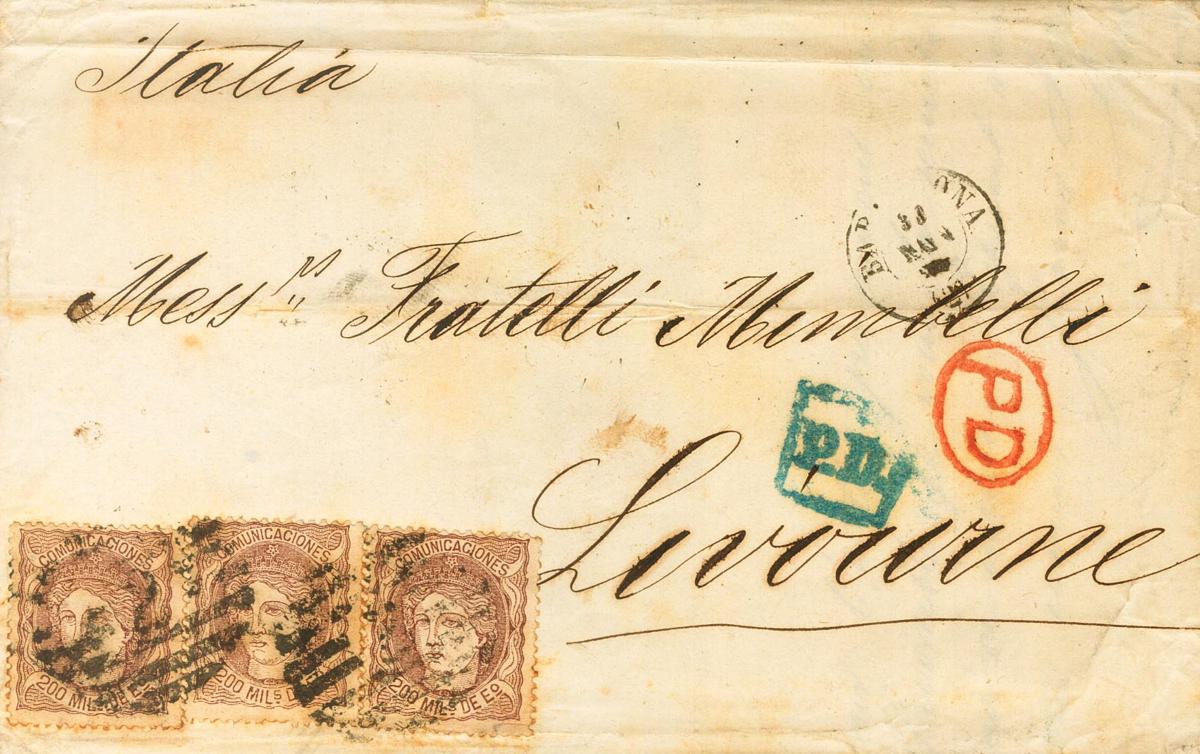 Italia
Messrs Fratelli Mimbelli
PD
P.D.
Livourne
COMUNICACIONES
200 MILS DE EO
COMUNICACIONES
200 MILS DE
COMUNICACIONES
200 MILS DE EO